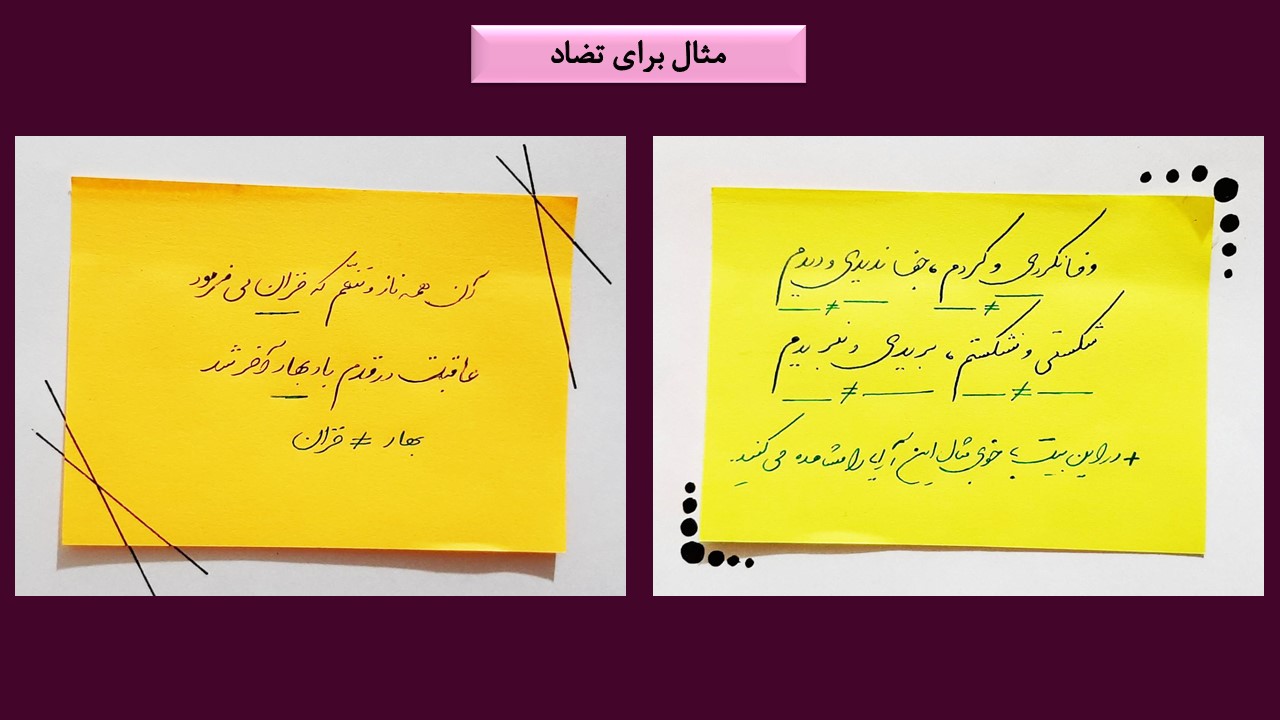 مثال برای تضاد
وفا نکردی و کردم، جفا ندیدی و دیدم
≠ ≠
شکستی و نشکستم، بریدی و نبریدم
≠ ≠
+ در این بیت به خوبی مثال این آرایه را مشاهده می کنید.
آن همه ناز و تنعّم که خزان می فرمود
عاقبت در قدم باد بهار آخر شد
بهار ≠ خزان